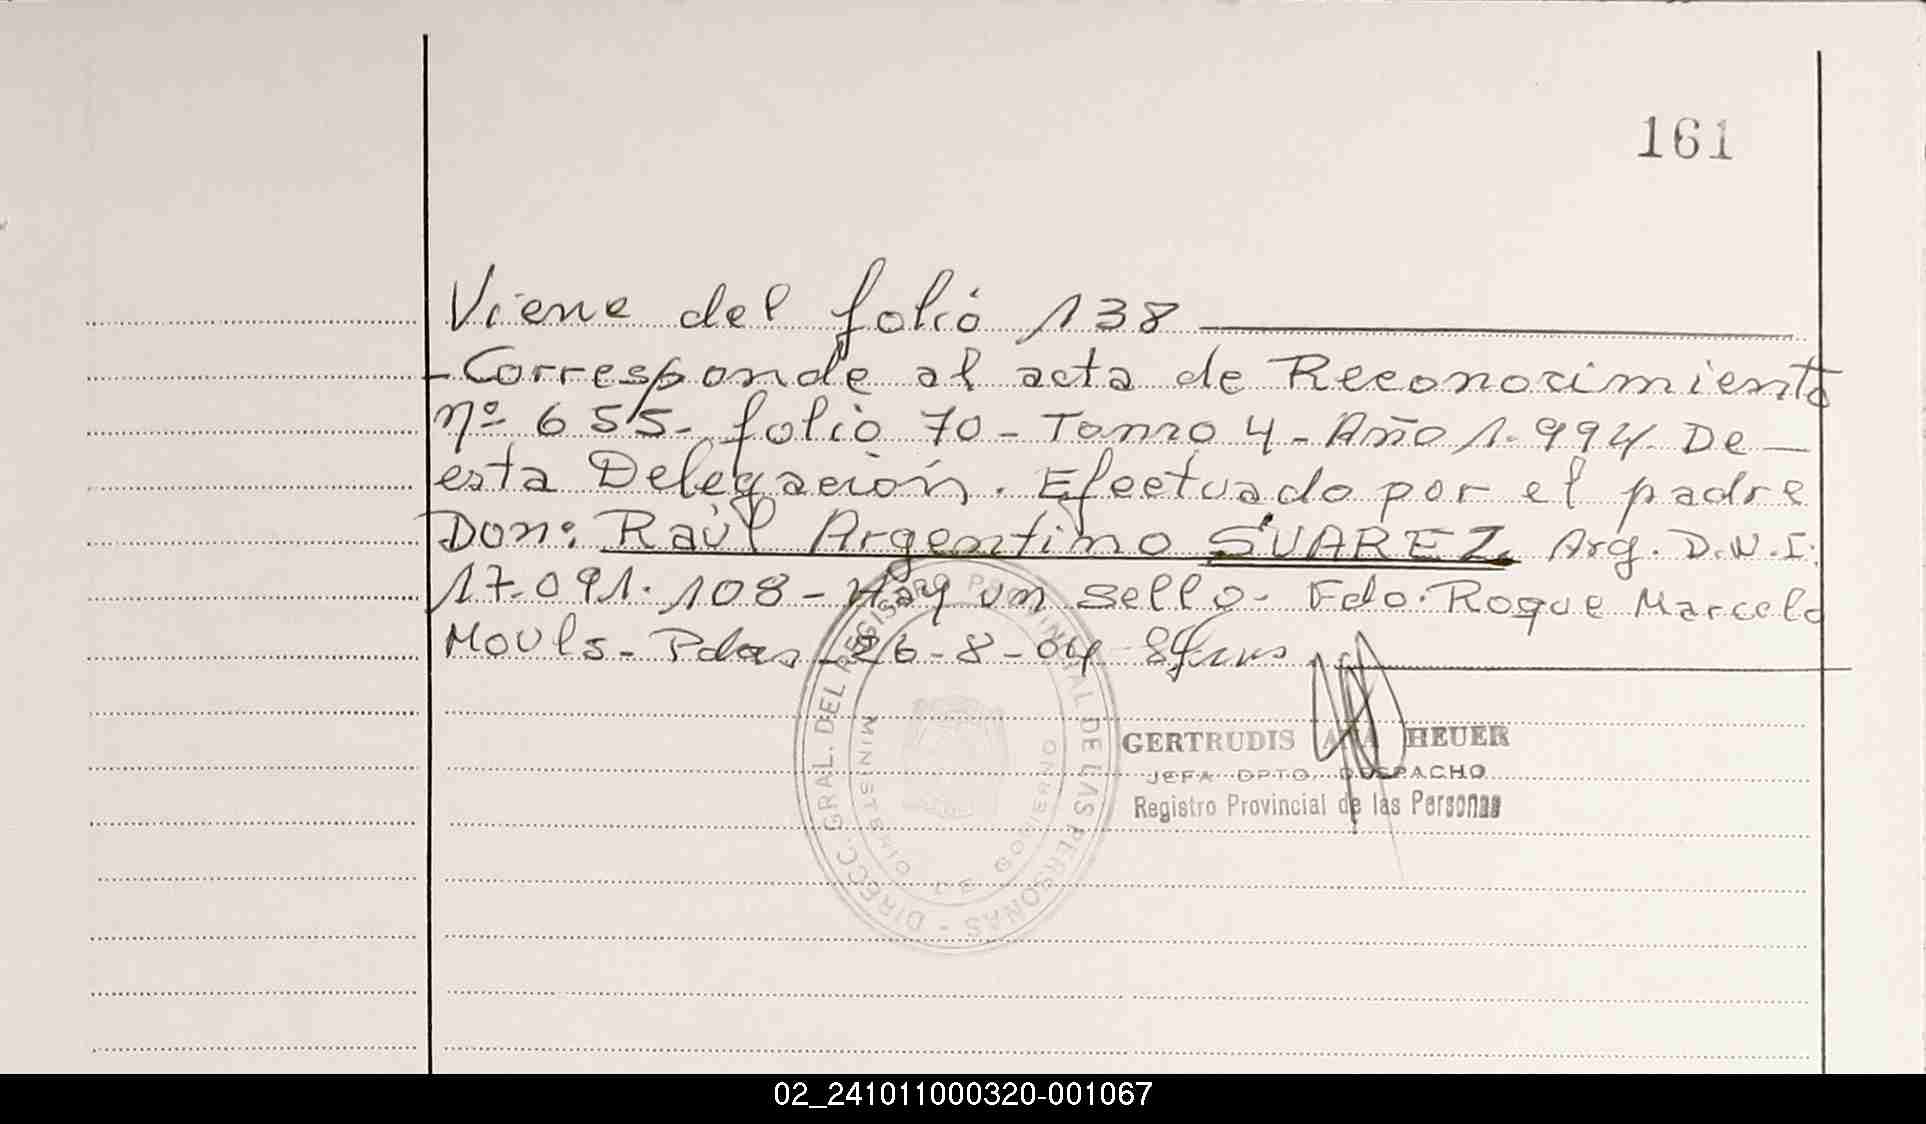 161
Viene del folio 138
-Corresponde al acta de Reconocimiento
nº 655- folio 70 - Tomo 4 - Año 1.994. De
esta Delegación. Efectuado por el padre
Don: Raúl Argentino SUAREZ. Arg. D.N.I:
17.091.108 - Hay un sello. Fdo. Roque Marcelo
Mouls - Pdas, 26-8-04
DIRECC. GRAL. DEL REGISTRO PROVINCIAL DE LAS PERSONAS -
MINISTERIO DE GOBIERNO
GERTRUDIS HEUER
JEFA DPTO. DESPACHO
Registro Provincial de las Personas
02_241011000320-001067